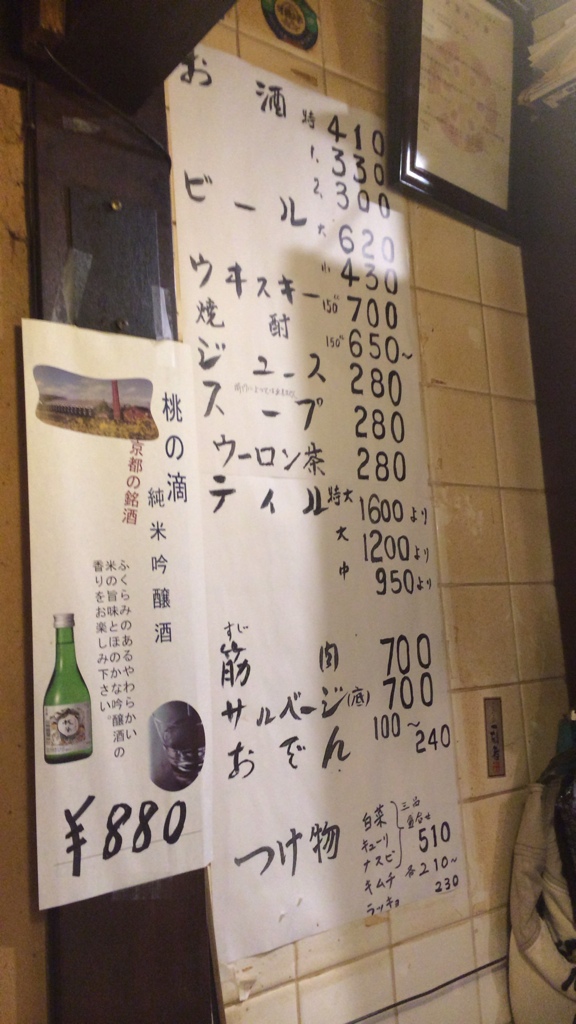 お酒 特 410
1. 330
2. 300
ビール 大 620
小 430
ウヰスキー 150cc 700
焼酎 150cc 650~
ジュース 280
スープ 280
ウーロン茶 280
テイル 特大 1600より
大 1200より
中 950より
すじ
筋肉 700
サルベージ(底) 700
おでん 100~240
つけ物 白菜 キューリ ナスビ 三品盛合せ 510
キムチ 各210~
ラッキョ 230
桃の滴
純米吟醸酒
京都の銘酒
ふくらみのあるやわらかい
米の旨味とほのかな吟醸酒の
香りをお楽しみ下さい。
¥880